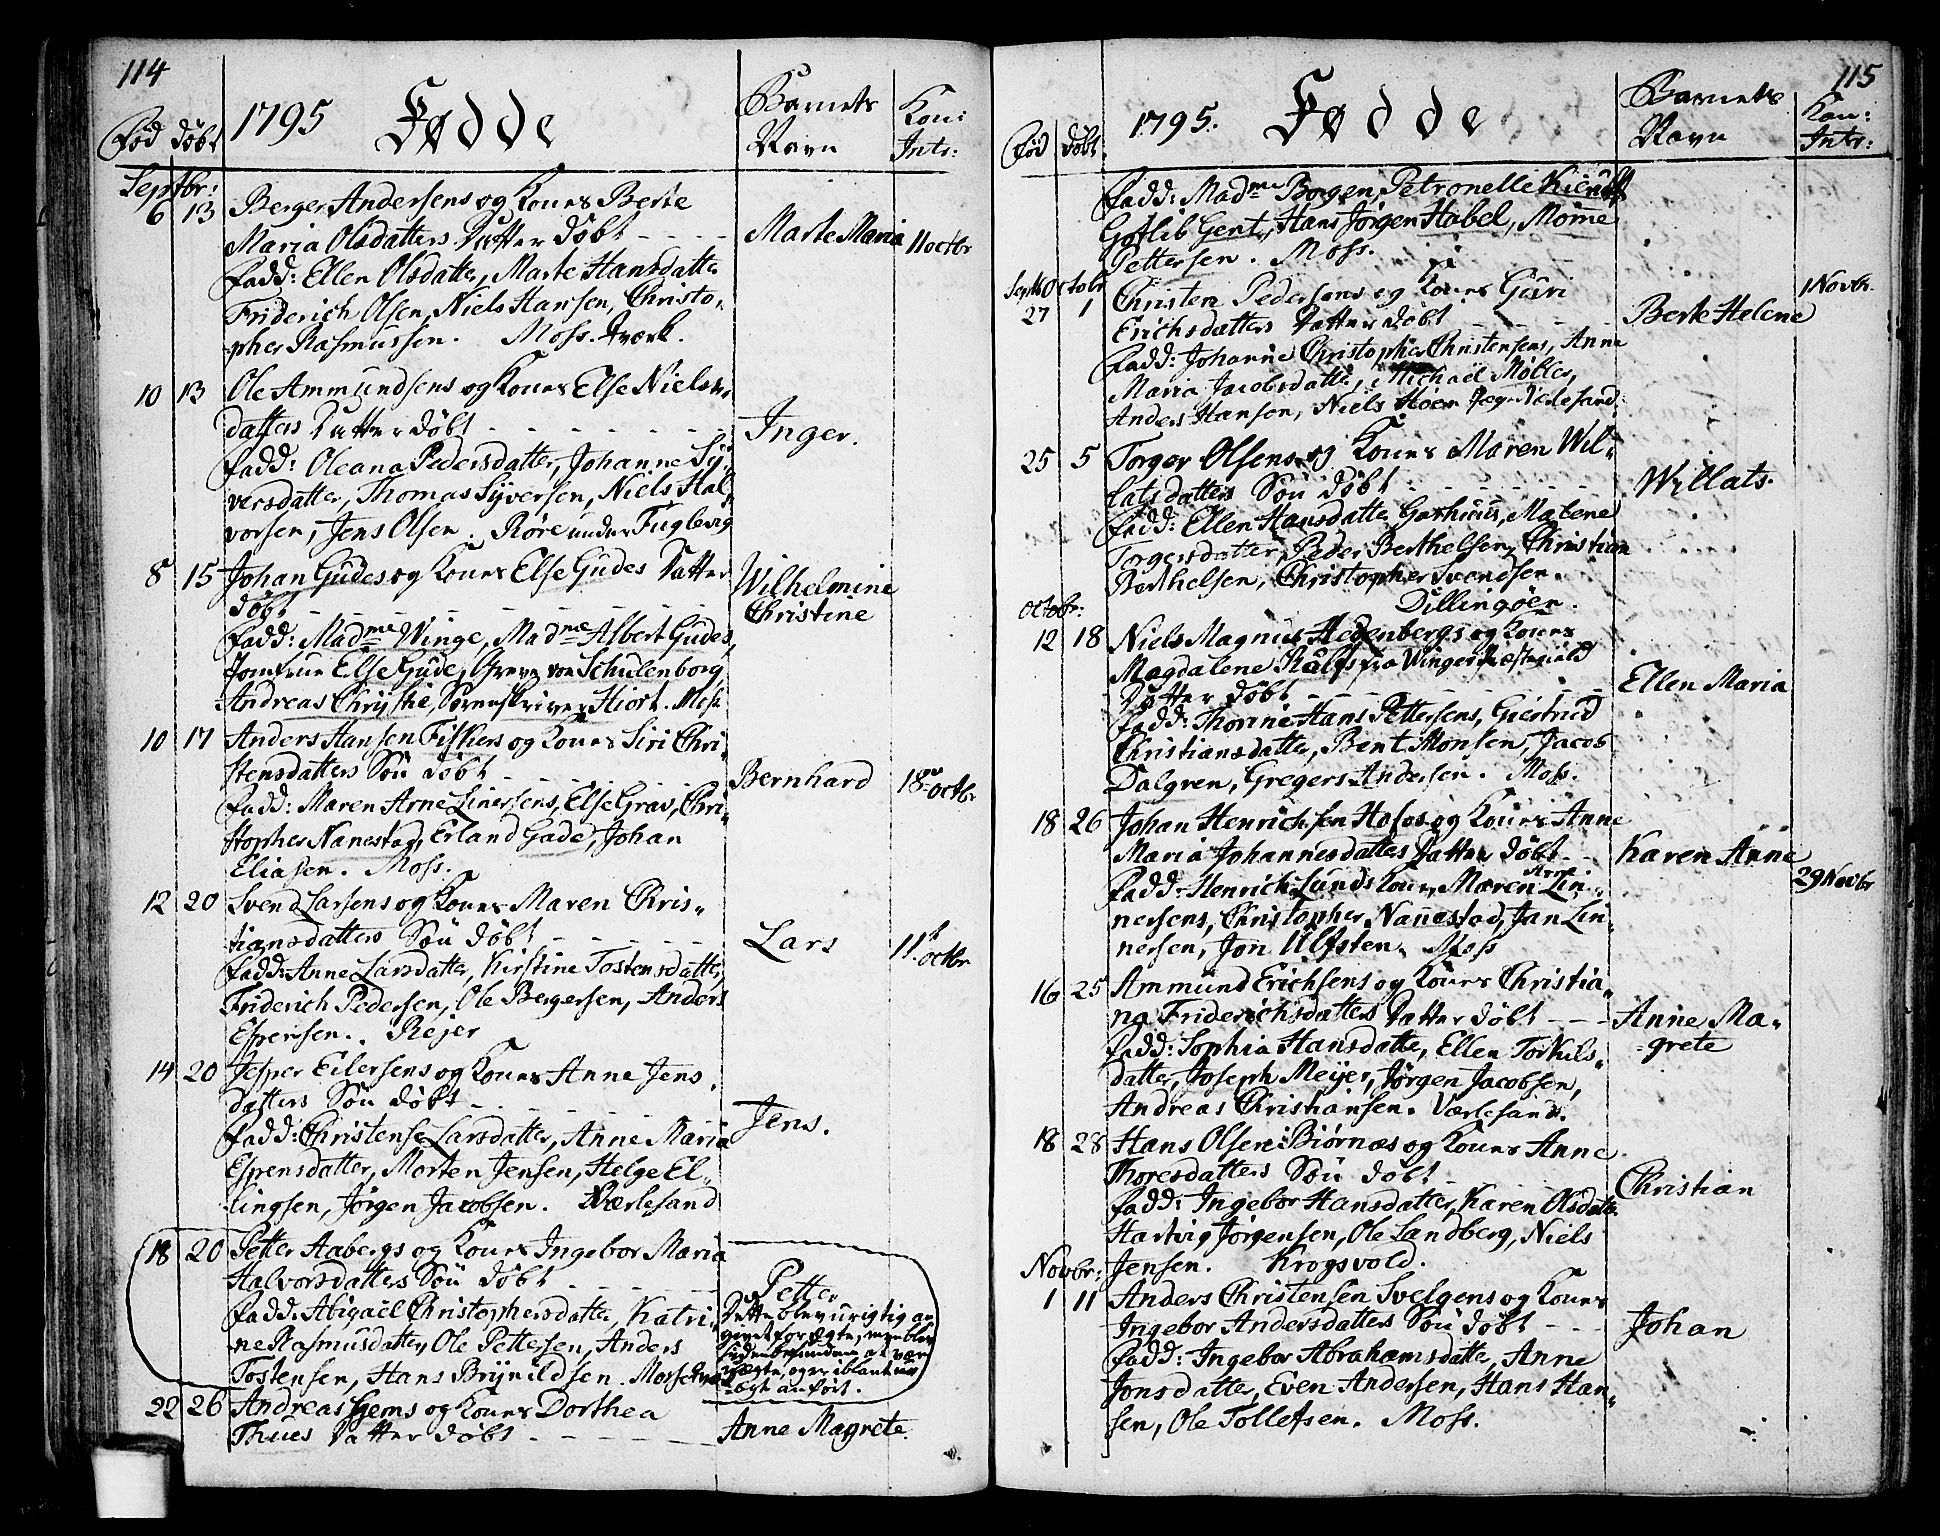 114
1795 Fødde
Barnets Navn
Kon: Intr:
Fød døbt
Septbr:
6 13 Berger Andersens og Kones Berte
Maria Olsdatters Datter døbt - - - - Marte Maria 11 octbr
Fadd: Ellen Olsdatter, Marte Hansdatter
Friderich Olsen, Niels Hansen, Christo-
pher Rasmussen. Moss. Værk.
10 13 Ole Ammundsens og Kones Else Niels-
datters Datter døbt - - - - Inger.
Fadd: Oleana Pedersdatter, Johanne Sy-
versdatter, Thomas Syversen, Niels Hal-
vorsen, Jens Olsen. Røre under Fuglevig
8 15 Johan Gudes og Kones Else Gudes Datter Wilhelmine
døbt - - - - Christine
Fadd: Madme Winge, Madme Albert Gudes,
Jomfrue Else Gude, Greve von Schulenborg,
Andreas Chrystie, Sorenskriver Hiort. Moss
10 17 Anders Hansen Fiskers og Kones Siri Chri-
stensdatters Søn døbt - - Bernhard 18de octbr
Fadd: Maren Arne Linersens, Else Grav, Chri-
stopher Nanestad, Erland Gade, Johan
Eliasen. Moss.
12 20 Svend Larsens og Kones Maren Chris-
tiansdatters Søn døbt - - - - Lars 11t octbr
Fadd: Anne Larsdatter, Kirstine Tostensdatter,
Friderich Pedersen, Ole Bergersen, Anders
Espensen. Rejer
14 20 Jesper Eilersens og Kones Anne Jens-
datters Søn døbt - - - - Jens.
Fadd: Christense Larsdatter, Anne Maria
Espensdatter, Morten Jensen, Helge El-
lingsen, Jørgen Jacobsen. Værlesand
18 20 Petter Aabergs og Kones Ingebor Maria
Halvorsdatters Søn døbt - - - - Petter
Fadd: Abigael Christophersdatter, Katri-
ne Rasmusdatter, Ole Pettersen, Anders
Tostensen, Hans Brynildsen. Mosse
Dette blev urigtig an
givet for ægte, men blev
siden befunden at være
uægte, og er iblant uæ
ægte anført.
22 26 Andreas Gjems og Kones Dorthea
Thues Datter døbt - - - - Anne Magrete.
115
1795. Fødde
Barnets Navn
Kon: Intr:
Fød døbt
Fadd: Madme Borgen, Petronelle
Gotlib Gent, Hans Jørgen Habel, Mønne
Pettersen. Moss.
Septb Octobr
27 1 Christen Pedersens og Kones Guri 1 Novbr.
Erichsdatters Datter døbt - - - - Berte Helene
Fadd: Johanne Christopher Christensens, Anne
Maria Jacobsdatter, Michael Møller,
Anders Hansen, Niels Hoem
25 5 Torger Olsens og Kones Maren Wil-
latsdatters Søn døbt - - - - Willats.
Fadd: Ellen Hansdatter Garhuus, Malene
Torgersdatter, Peder Berthelsen, Christian
Berthelsen, Christopher Svendsen.
Dillingøen.
Octobr:
12 18 Niels Magnus Hedenbergs og Kones
Magdalene Rålfs fra Winger Præstegield
Datter døbt - - - - Ellen Maria
Fadd: Thorine Hans Pettersens, Giertrud
Christiansdatter, Bent Monsen, Jacob
Dalgren, Gregers Andersen. Moss.
18 26 Johan Henrichsen Hofos og Kones Anne
Maria Johannesdatters Datter døbt - - Karen Anne 29 Novbr
Fadd: Henrich Lunds Kone, Maren Arne Lin-
nersens, Christopher Nannestad, Jan Lin-
nersen, Jon Ulfsten. Moss
16 25 Ammund Erichsens og Kones Christia-
na Friderichsdatters Datter døbt - - - Anne Ma-
grete
Fadd: Sophia Hansdatter, Ellen Torkils-
datter, Joseph Meijer, Jørgen Jacobsen,
Andreas Christiansen. Værlesand.
18 28 Hans Olsen Biørnæs og Kones Anne
Thoresdatters Søn døbt - - Christian
Fadd: Ingebor Hansdatter, Karen Olsdatter
Hartvig Jørgensen, Ole Sandberg, Niels
Jensen. Krogsvold.
Novbr:
1 11 Anders Christensen Svelgens og Kones
Ingebor Andersdatters Søn døbt - - Johan
Fadd: Ingebor Abrahamsdatter, Anne
Jonsdatter, Even Andersen, Hans Han-
sen, Ole Tollefsen. Moss.